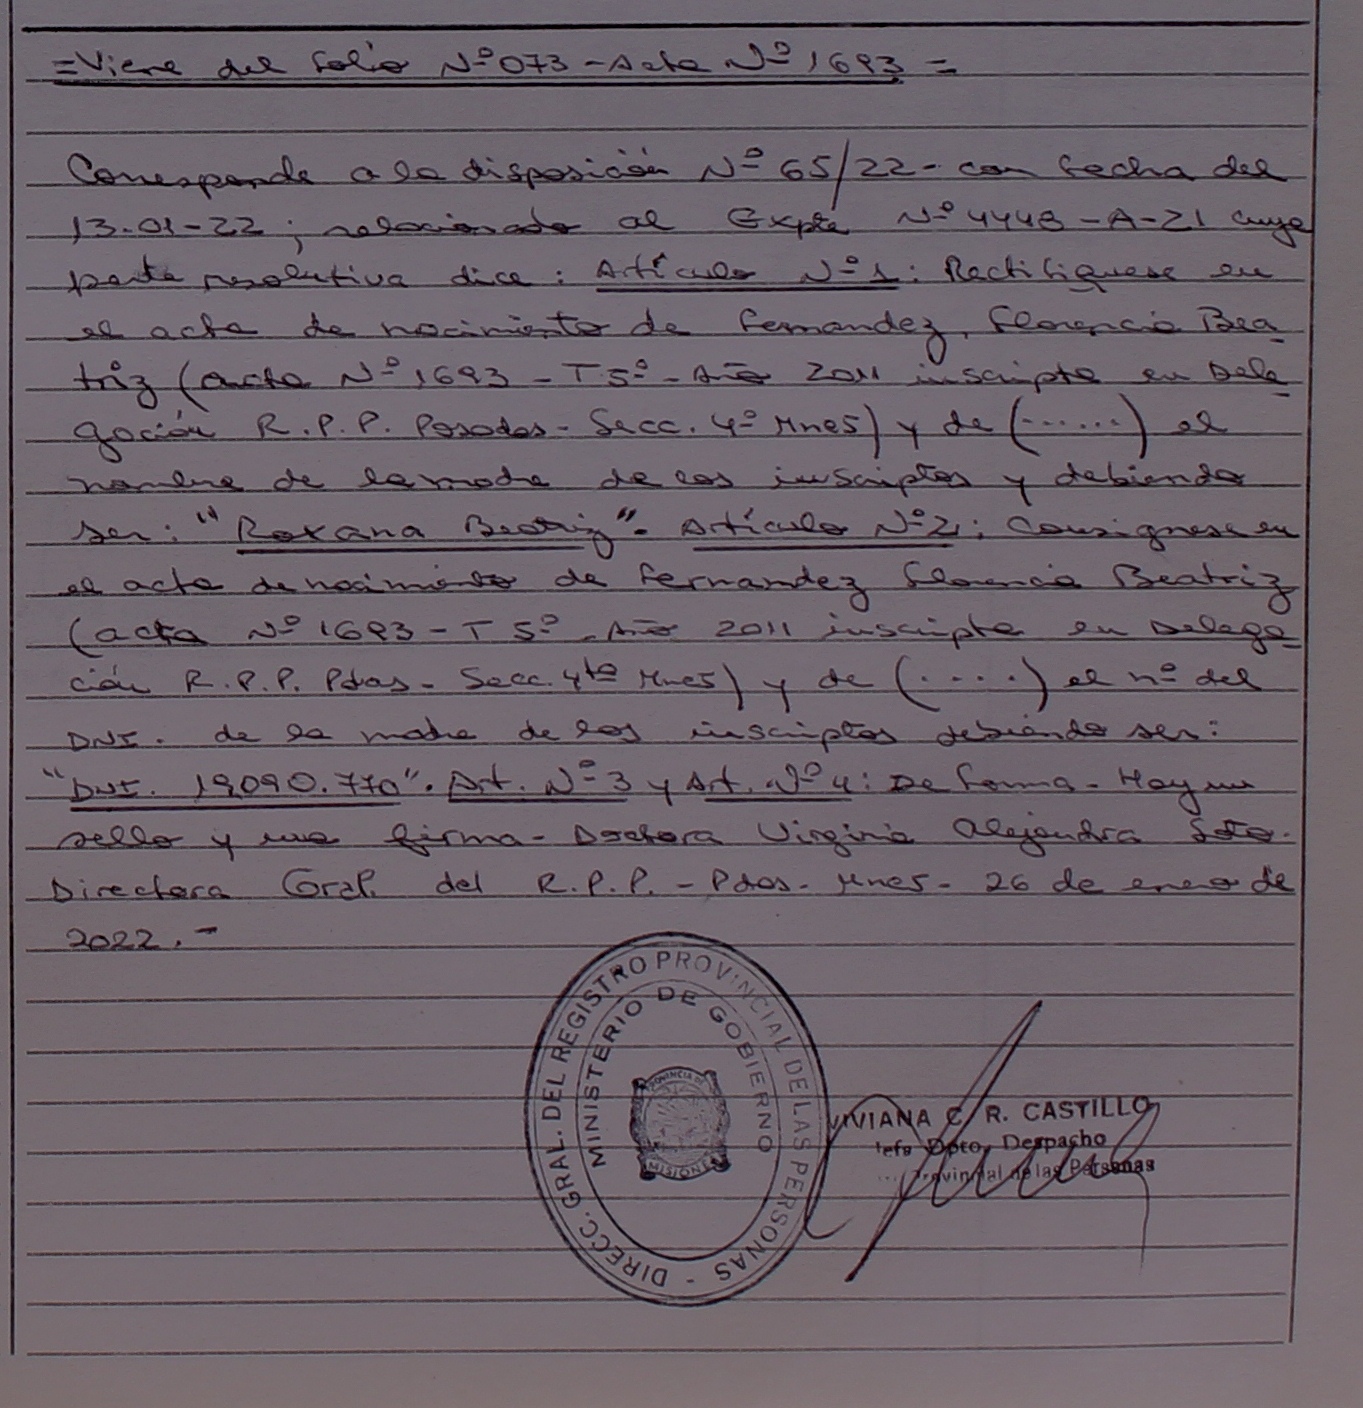 =Viene del folio Nº 073 - Acta Nº 1693 =
Corresponde a la disposición Nº 65/22 - con fecha del
13-01-22; relacionado al Expte Nº 4448-A-21 cuya
parte resolutiva dice: Artículo Nº 1: Rectifiquese en
el acta de nacimiento de Fernandez, Florencia Bea-
triz (acta Nº 1693 - T 5º - Año 2011 inscripta en Dele-
gación R.P.P. Posadas - Secc. 4º Mnes) y de (......) el
nombre de la madre de los inscriptos y debiendo
ser: "Roxana Beatriz". Artículo Nº 2: Consignese en
el acta de nacimiento de Fernandez Florencia Beatriz
(acta Nº 1693 - T 5º - Año 2011 inscripta en Delega-
ción R.P.P. Pdas - Secc. 4ta Mnes) y de (....) el nº del
DNI. de la madre de los inscriptos debiendo ser:
"DNI. 19.090.770". Art. Nº 3 y Art. Nº 4: De forma - Hay un
sello y una firma - Doctora Virginia Alejandra Soto.
Directora Gral. del R.P.P. - Pdas. Mnes - 26 de enero de
2022.-
DIRECC. GRAL. DEL REGISTRO PROVINCIAL DE LAS PERSONAS -
MINISTERIO DE GOBIERNO
PROVINCIA DE
MISIONES
VIVIANA C. R. CASTILLO
Jefe Dpto. Despacho
Provincial de las Personas